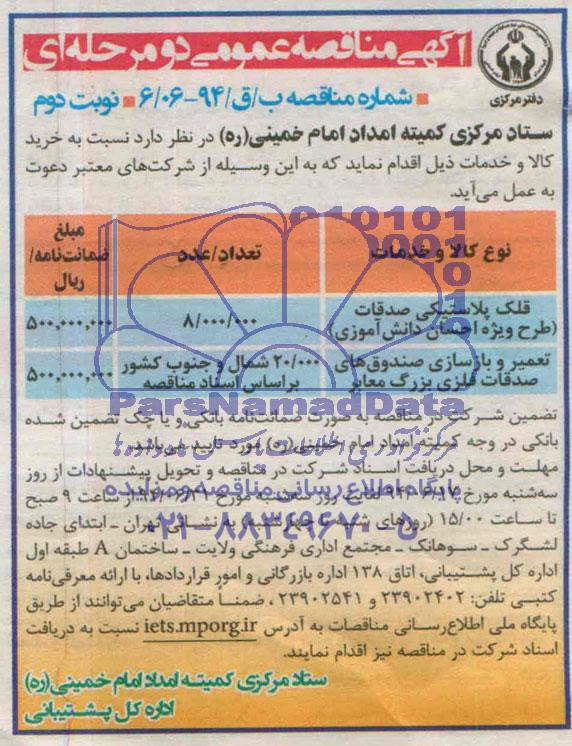 آگهی مناقصه عمومی دو مرحله‌ای
دفتر مرکزی
شماره مناقصه ب/ق/۹۴-۶/۰۶ نوبت دوم
ستاد مرکزی کمیته امداد امام خمینی(ره) در نظر دارد نسبت به خرید
کالا و خدمات ذیل اقدام نماید که به این وسیله از شرکت‌های معتبر دعوت
به عمل می‌آید.
نوع کالا و خدمات تعداد/عدد مبلغ ضمانت‌نامه/ ریال
قلک پلاستیکی صدقات (طرح ویژه احسان دانش‌آموزی) ۸/۰۰۰/۰۰۰ ۵۰۰,۰۰۰,۰۰۰
تعمیر و بازسازی صندوق‌های صدقات فلزی بزرگ معابر ۲۰/۰۰۰ شمال و جنوب کشور براساس اسناد مناقصه ۵۰۰,۰۰۰,۰۰۰
ParsNamadData
تضمین شرکت در مناقصه به صورت ضمانت‌نامه بانکی و یا چک تضمین شده
بانکی در وجه کمیته امداد امام خمینی (ره) مورد تایید می‌باشد.
مهلت و محل دریافت اسناد شرکت در مناقصه و تحویل پیشنهادات از روز
سه‌شنبه مورخ لغایت روز مورخ از ساعت ۹ صبح
پایگاه اطلاع رسانی مناقصه و مزایده
تا ساعت ۱۵/۰۰ (روزهای شنبه تا چهارشنبه) به نشانی تهران ـ ابتدای جاده
۰۲۱-۸۸۳۴۹۶۷۰-۵
لشگرک ـ سوهانک ـ مجتمع اداری فرهنگی ولایت ـ ساختمان A طبقه اول
اداره کل پشتیبانی، اتاق ۱۳۸ اداره بازرگانی و امور قراردادها، با ارائه معرفی‌نامه
کتبی تلفن: ۲۳۹۰۲۴۰۲ و ۲۳۹۰۲۵۴۱ ، ضمناً متقاضیان می‌توانند از طریق
پایگاه ملی اطلاع‌رسانی مناقصات به آدرس iets.mporg.ir نسبت به دریافت
اسناد شرکت در مناقصه نیز اقدام نمایند.
ستاد مرکزی کمیته امداد امام خمینی (ره)
اداره کل پشتیبانی